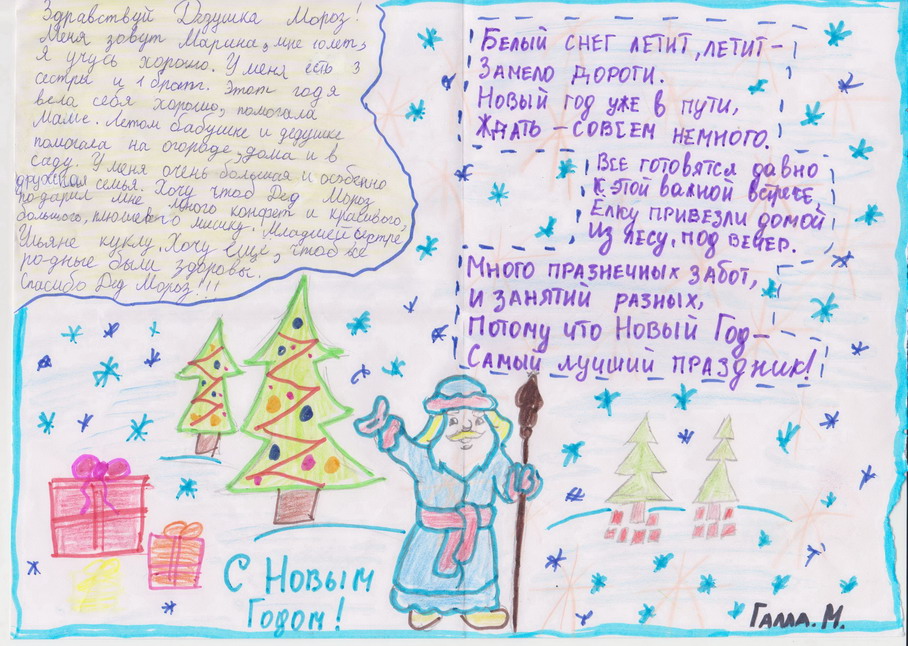 Здравствуй Дедушка Мороз!
Меня зовут Марина, мне 10 лет,
я учусь хорошо. У меня есть 3
сестры и 1 брат. Этот год я
вела себя хорошо, помогала
маме. Летом бабушке и дедушке
помогала на огороде, дома и в
саду. У меня очень большая и особенно
дружная семья. Хочу чтоб Дед Мороз
подарил мне много конфет и красивого,
большого, плюшевого мишку. Младшей сестре
Ульяне куклу. Хочу ещё, чтоб все
родные были здоровы.
Спасибо Дед Мороз!!!
Белый снег летит, летит –
Замело дороги.
Новый год уже в пути,
Ждать – совсем немного.
Все готовятся давно
К этой важной встрече,
Ёлку привезли домой
Из лесу, под вечер.
Много празнечных забот,
и занятий разных,
Потому что Новый Год –
Самый лучший праздник!
С Новым
Годом!
Галла. М.